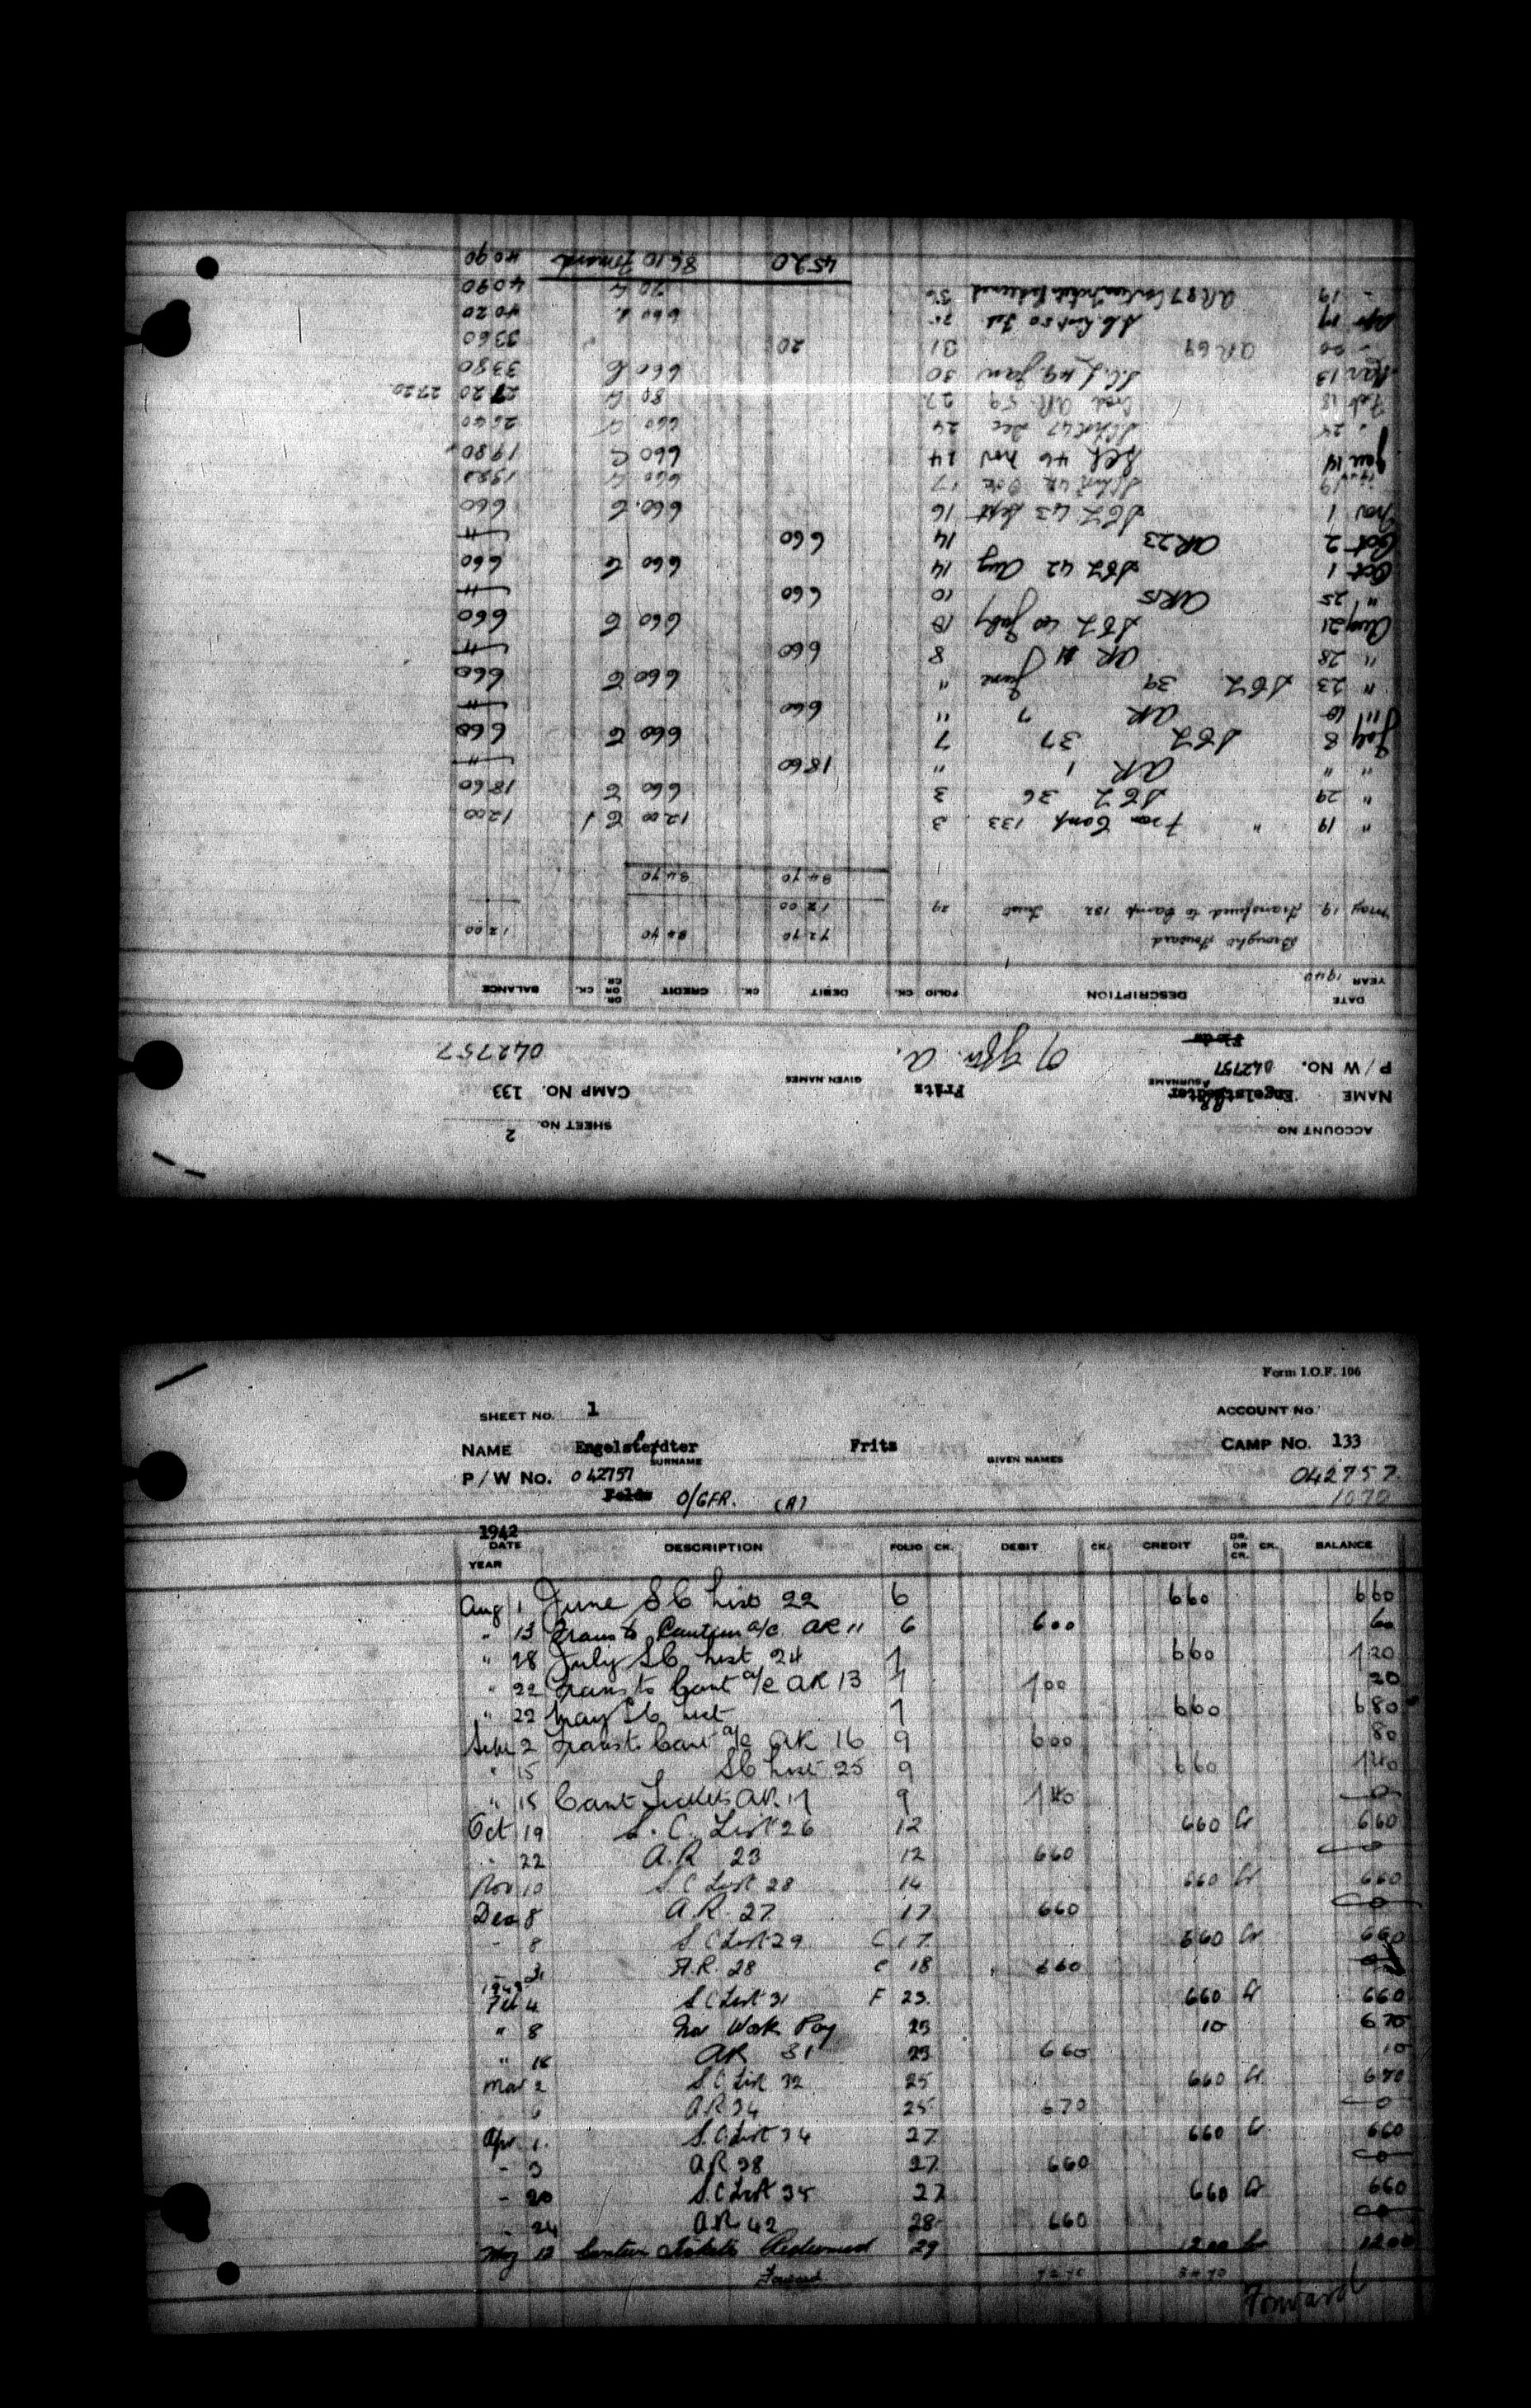 ACCOUNT NO
SHEET NO. 2
NAME SURNAME Frits GIVEN NAMES CAMP NO. 133
P/W NO. 042757 042757
DATE DESCRIPTION FOLIO CK. DEBIT CK. CREDIT DR. OR CR. CK. BALANCE
YEAR
Brought Forward 72 70 84 70 12 00
May 19 Transferred to Camp 132 29 12 00
84 70 84 70
" 19 " From Camp 133 3 1200 C 1200
" 29 SCL 36 3 660 C 1860
" " AR 1 " 1860
July 8 SCL 37 7 660 C 660
" 10 AR 7 " 660
" 23 SCL 39 June " 660 C 660
" 28 AR 11 8 660
Aug 21 SCL 40 July 10 660 C 660
" 25 AR15 10 660
Oct 1 SCL 42 Aug 14 660 C 660
Oct 2 AR23 14 660
Nov 1 SCL 43 Sept 16 660 C 660
19 17 660 1320
Jan 14 SCL 46 Nov 24 660 C 1980
" 24 47 Dec 24 660 2640
Feb 18 AR 59 27 80 2720 2720
Mar 13 S.C.L 49 Jan 30 660 C 3380
20 AR 69 31 20 3360
Apr 17 S.C. List 50 Feb 660 4020
19 AR 87 Canteen Tickets Redeemed 70 4090
4520 8610 Forward 4090
Form I.O.F. 106
SHEET NO. 1 ACCOUNT NO.
NAME SURNAME Frits GIVEN NAMES CAMP NO. 133
P/W NO. 042757 042757
O/GFR. (A) 1070
1942
DATE DESCRIPTION FOLIO CK. DEBIT CK. CREDIT DR. OR CR. CK. BALANCE
YEAR
Aug 1 June SC List 22 6 660 660
" 13 Trans to Canteen a/c. AR 11 6 600 60
" 18 July SC List 24 7 660 720
" 22 Trans to Cant a/c AR 13 7 700 20
" 22 May SC List 7 660 680
Sept 2 Trans to Cant a/c AR 16 9 600 80
" 15 SC List 25 9 660 740
" 15 Cant Tickets AR. 17 9 740 0
Oct 19 S.C. List 26 12 660 Cr 660
" 22 A.R 23 12 660 0
Nov 10 S C List 28 14 660 Cr 660
Dec 8 A.R. 27 17 660 0
" 8 S C List 29 C 17 660 Cr 660
31 A.R. 28 C 18 660 0
1943
Feb 4 S C List 31 F 23 660 Cr 660
" 8 Work Pay 23 10 670
" 18 AR 31 23 660 10
Mar 2 S.C List 32 25 660 Cr 670
6 AR 34 25 670 0
Apr 1 S.C List 34 27 660 Cr 660
" 3 AR 38 27 660 0
" 20 S.C List 35 27 660 Cr 660
" 24 AR 42 28 660 0
May 12 Canteen Tickets Redeemed 29 1200 Cr 1200
Forward 72 70 84 70
Forward